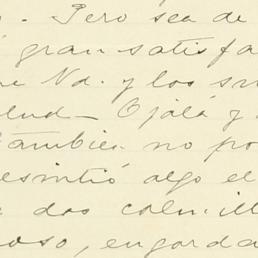 . Pero sea de
gran satisfa
e Vd. y los su
lud — Ojalá y
Tambien no po
esintió algo el
e dos colmill
oso, engorda